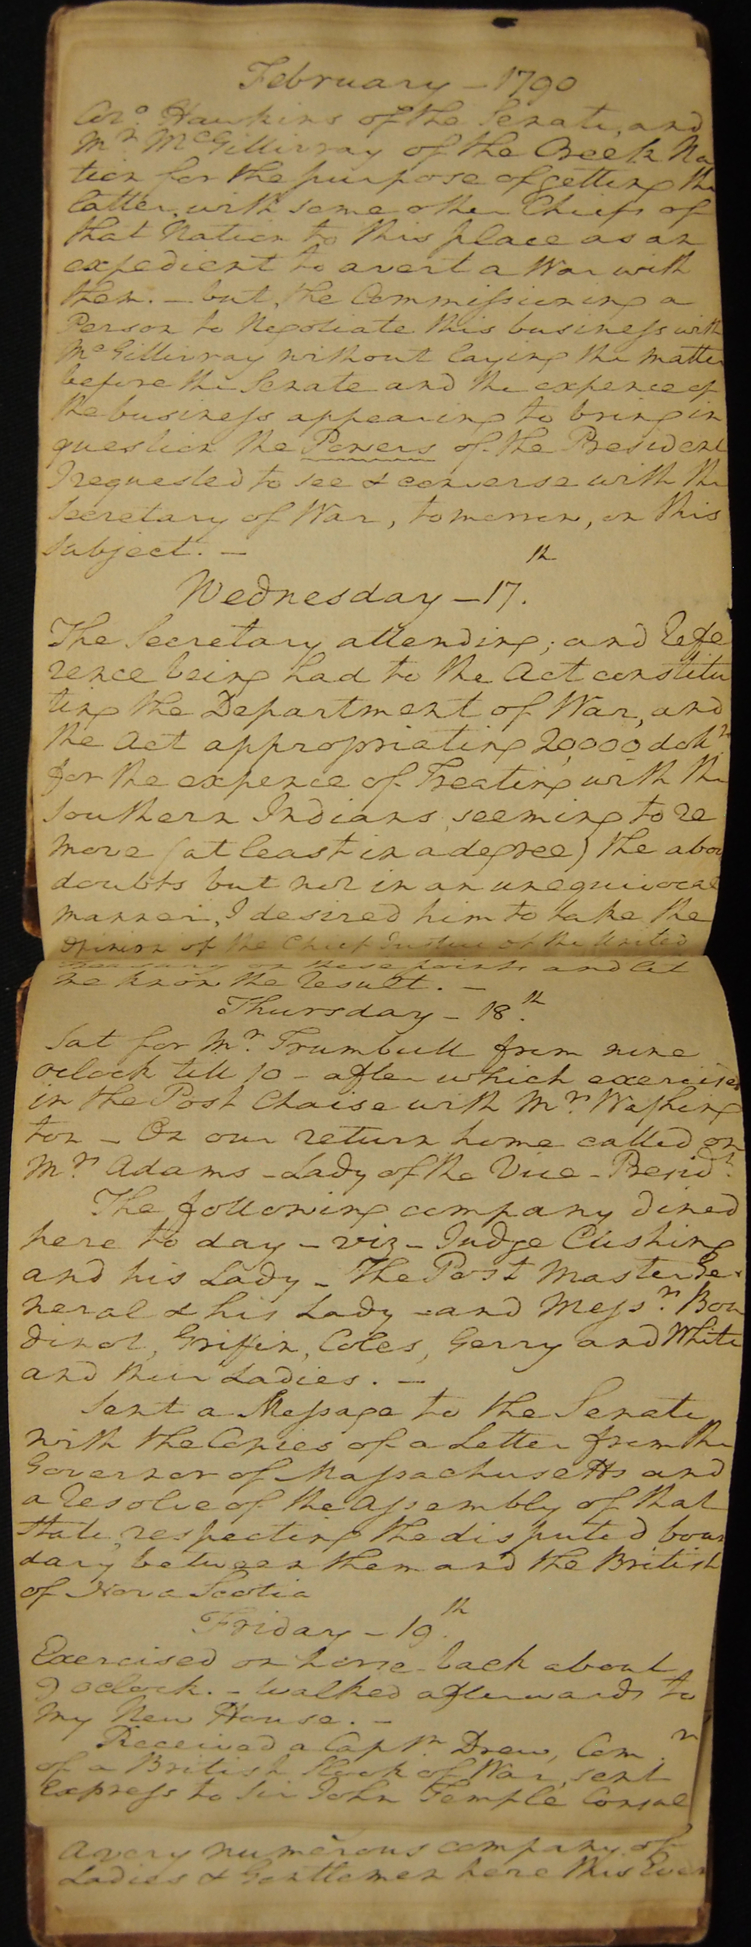 February - 1790
Hawkins of the Senate, and
Mr. McGillivray of the Creek Na
tion for the purpose of getting the
latter, with some other Chiefs of
that Nation to this place as an
expedient to avert a War with
them. - but, the Commissioning a
Person to Negotiate this business with
McGillivray without laying the matter
before the Senate and the expence of
the business appearing to bring in
question the Powers of the President
I requested to see & converse with the
Secretary of War, tomorrow, on this
subject. -
Wednesday - 17.th
The Secretary attending; and refe
rence being had to the Act constitu
ting the Department of War, and
the Act appropriating 20,000 dolrs
for the expence of Treating with the
Southern Indians, seeming to re
move (at least in a degree) the above
doubts but not in an unequivocal
manner, I desired him to take the
opinion of the Chief Justice of the United
on these points and let
me know the result. -
Thursday - 18.th
Sat for Mr. Trumbull from nine
oclock till 10 - after which exercised
in the Post Chaise with Mrs. Washing
ton - On our return home called on
Mrs. Adams - Lady of the Vice-Presidt.
The following company dined
here to day - viz - Judge Cushing
and his Lady - The Post Master Ge-
neral & his Lady - and Messrs. Bou
dinot, Griffin, Coles, Gerry and White
and their Ladies. -
Sent a Message to the Senate
with the Copies of a Letter from the
Governor of Massachusetts and
a resolve of the Assembly of that
State, respecting the disputed boun
dary between them and the British
of Nova Scotia
Friday - 19.th
Exercised on horse-back about
9 oclock. - walked afterwards to
my New House. -
Received a Captn. Drew, Comr.
of a British Sloop of War, sent
express to Sir John Temple Consul
a very numerous company of
Ladies & Gentlemen here this Even